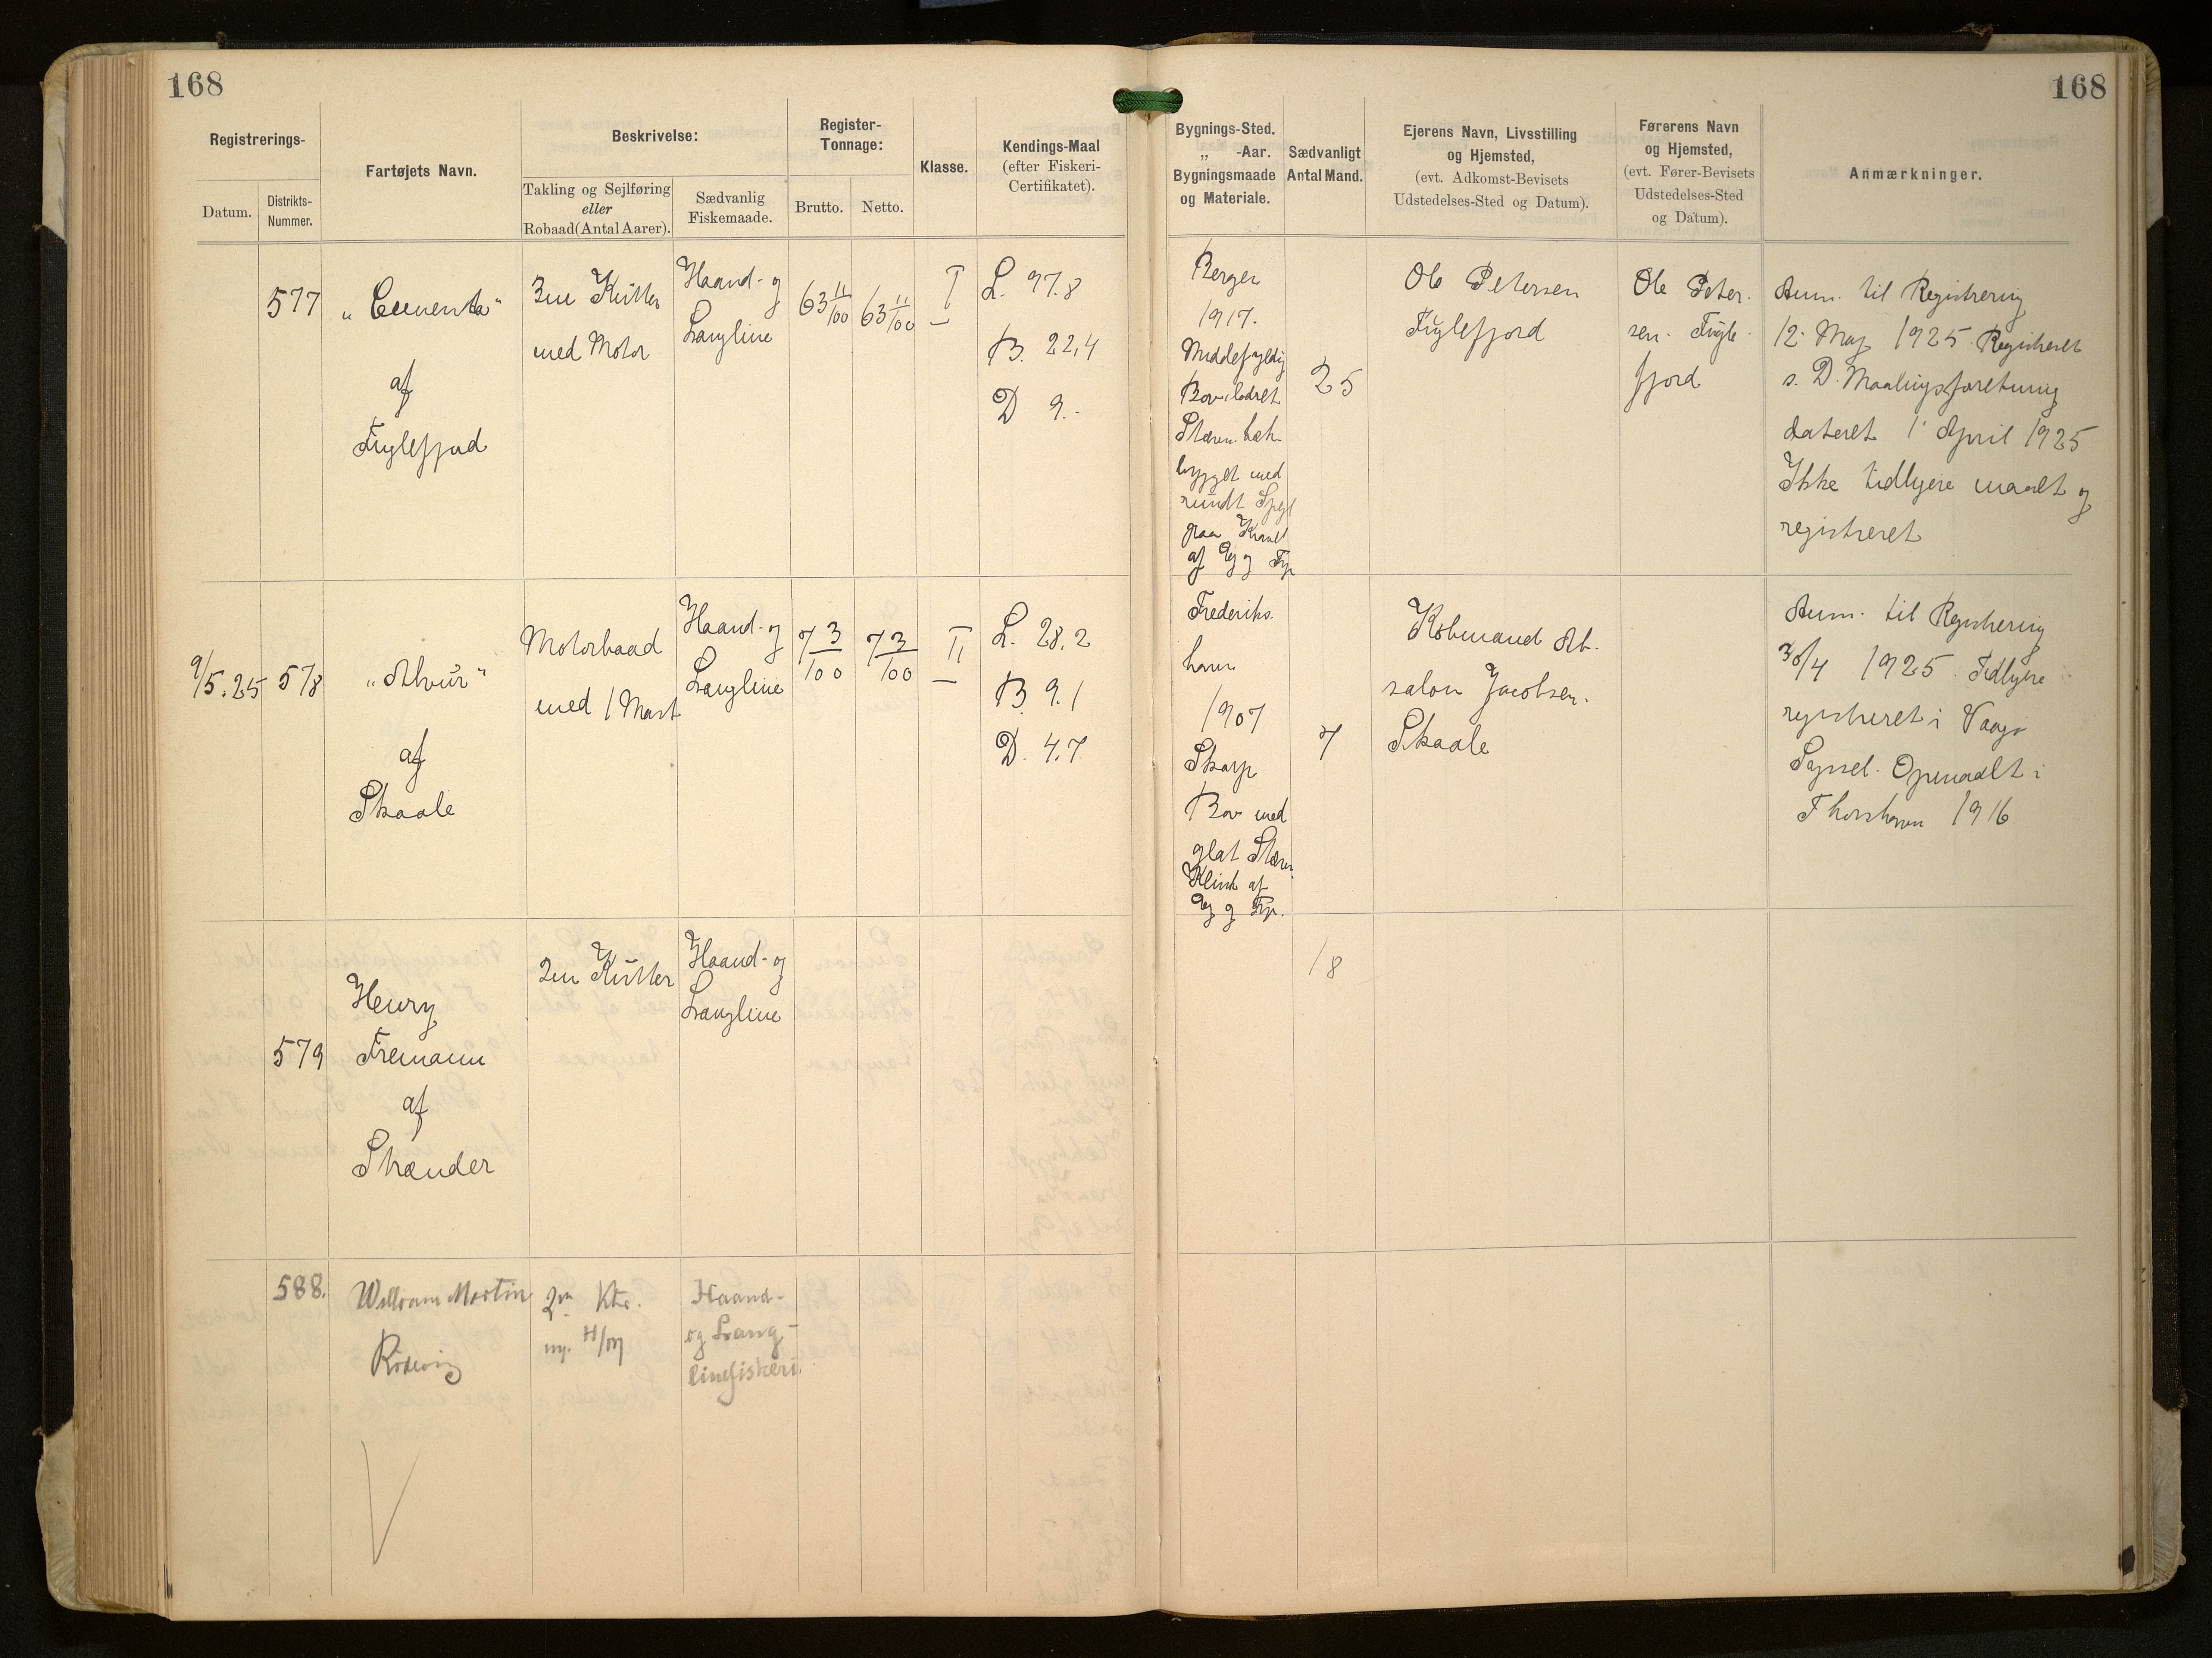 168
168
Registrerings-
Datum.
Distrikts-
Nummer.
Fartøjets Navn.
Beskrivelse:
Takling og Sejlføring
eller
Robaad (Antal Aarer).
Sædvanlig
Fiskemaade.
Register-
Tonnage:
Brutto.
Netto.
Klasse.
Kendings-Maal
(efter Fiskeri-
Certifikatet).
Bygnings-Sted.
„ -Aar.
Bygningsmaade
og Materiale.
Sædvanligt
Antal Mand.
Ejerens Navn, Livsstilling
og Hjemsted,
(evt. Adkomst-Bevisets
Udstedelses-Sted og Datum).
Førerens Navn
og Hjemsted,
(evt. Fører-Bevisets
Udstedelses-Sted
og Datum).
Anmærkninger.
577
af
Fuglefjord
3m Kutter
med Motor
Haand- og
Langline
63 11/100
63 11/100
I
L. 97.8
B. 22,4
D 9.-
Bergen
1917.
Middelfyldig
Bov, lodret
Stævn. hæk
bygget med
rundt Spejl
paa Kravel
af Eg og Fyr
25
Ole Petersen
Fuglefjord
Ole Peter-
sen. Fugle-
fjord
Anm. til Registrering
12. Maj 1925. Registreret
s. D. Maalingsforretning
dateret 1' April 1925
Ikke tidligere maalt og
registreret
9/5.25
578
af
Skaale
Motorbaad
med 1 Mast
Haand- og
Langline
7 3/100
7 3/100
II
L. 28.2
B. 9.1
D. 4.7
Frederiks-
havn
1907
Skarp
Bov med
glat Stævn.
Klink af
Eg og Fyr.
7
Købmand Ab-
salon Jacobsen.
Skaale
Anm. til Registrering
30/4 1925. Tidligere
registreret i Vaagø
Syssel. Opmaalt i
Thorshavn 1916
579
Henry
Freemann
af
Strænder
2m Kutter
Haand- og
Langline
18
588.
William Martin
2m Ktr.
m. H/M
Haand-
og Lang-
linefiskeri.